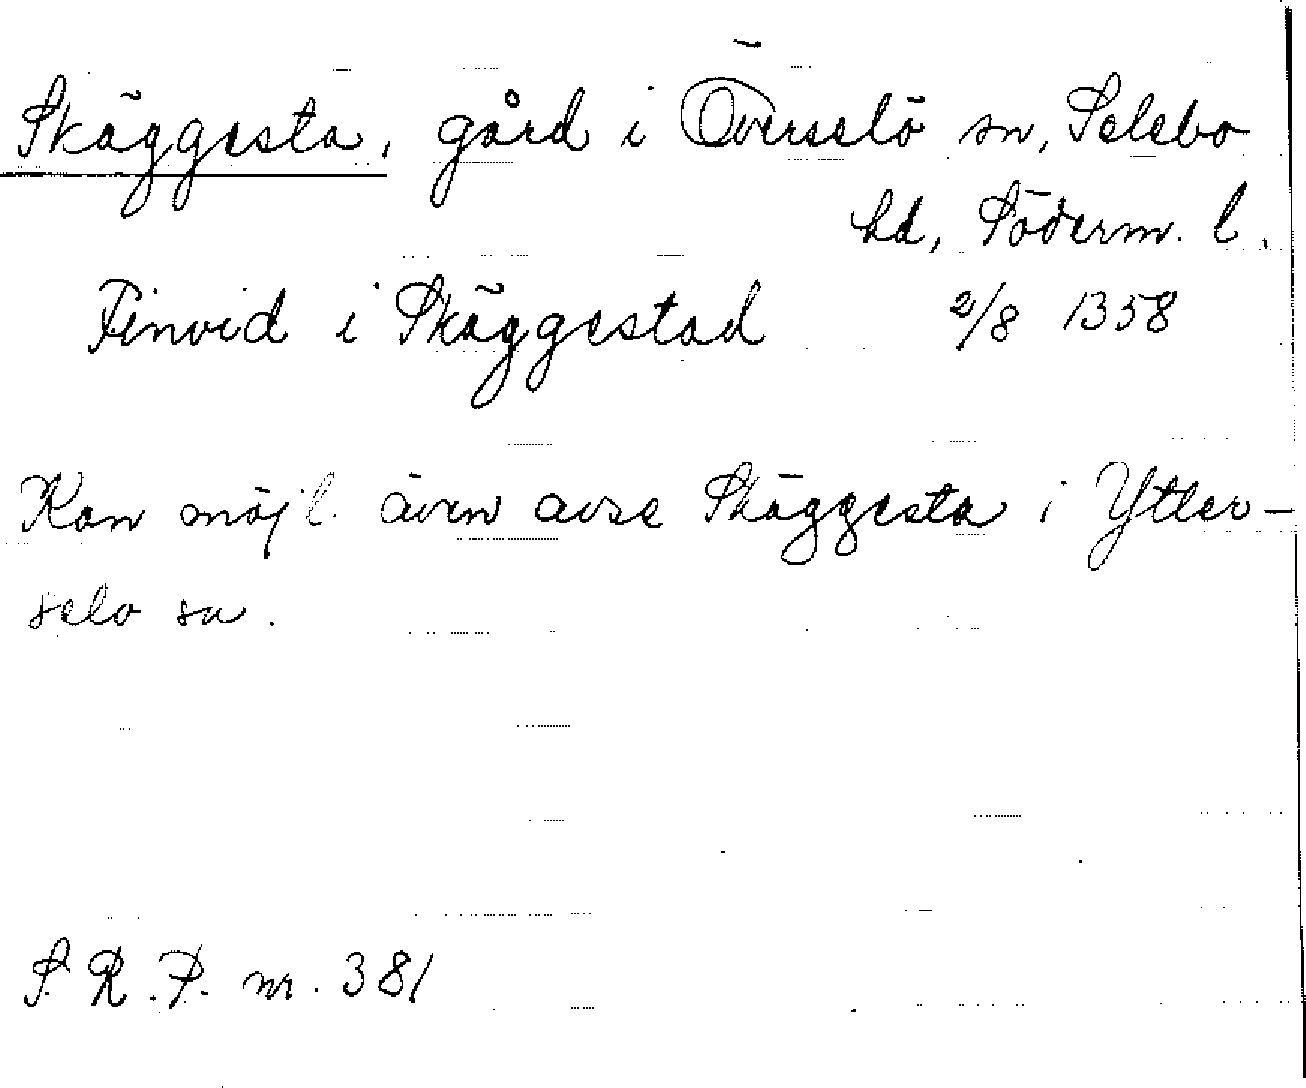 Skäggesta, gård i Överselö sn, Selebo
hd, Söderm. l.
Finvid i Skäggestad 2/8 1358
Kan möjl. även avse Skäggesta i Ytter-
selö sn.
S.R.P. nr. 381